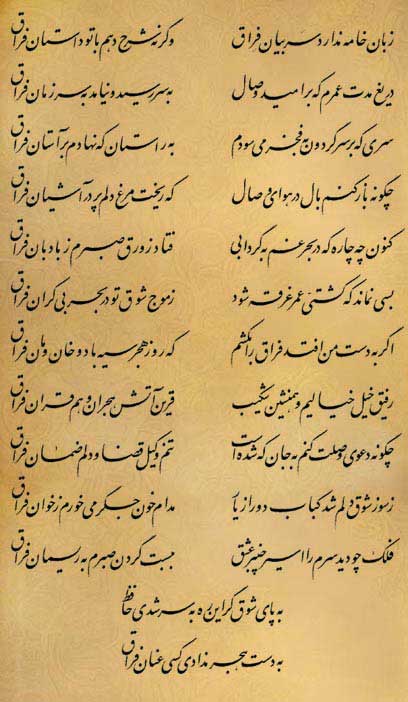 زبان خامه ندارد سر بیان فراق وگرنه شرح دهم با تو داستان فراق
دریغ مدت عمرم که بر امید وصال به سر رسید و نیامد به سر زمان فراق
سری که بر سر گردون به فخر می سودم به راستان که نهادم بر آستان فراق
چگونه باز کنم بال در هوای وصال که ریخت مرغ دلم پر در آشیان فراق
کنون چه چاره که در بحر غم به گردابی فتاد زورق صبرم ز بادبان فراق
بسی نماند که کشتی عمر غرقه شود ز موج شوق تو در بحر بی کران فراق
اگر به دست من افتد فراق را بکشم که روز هجر سیه باد و خان و مان فراق
رفیق خیل خیالیم و همنشین شکیب قرین آتش هجران و هم قران فراق
چگونه دعوی وصلت کنم به جان که شده است تنم وکیل قضا و دلم ضمان فراق
ز سوز شوق دلم شد کباب دور از یار مدام خون جگر می خورم ز خوان فراق
فلک چو دید سرم را اسیر چنبر عشق ببست گردن صبرم به ریسمان فراق
به پای شوق گر این ره به سر شدی حافظ
به دست هجر ندادی کسی عنان فراق